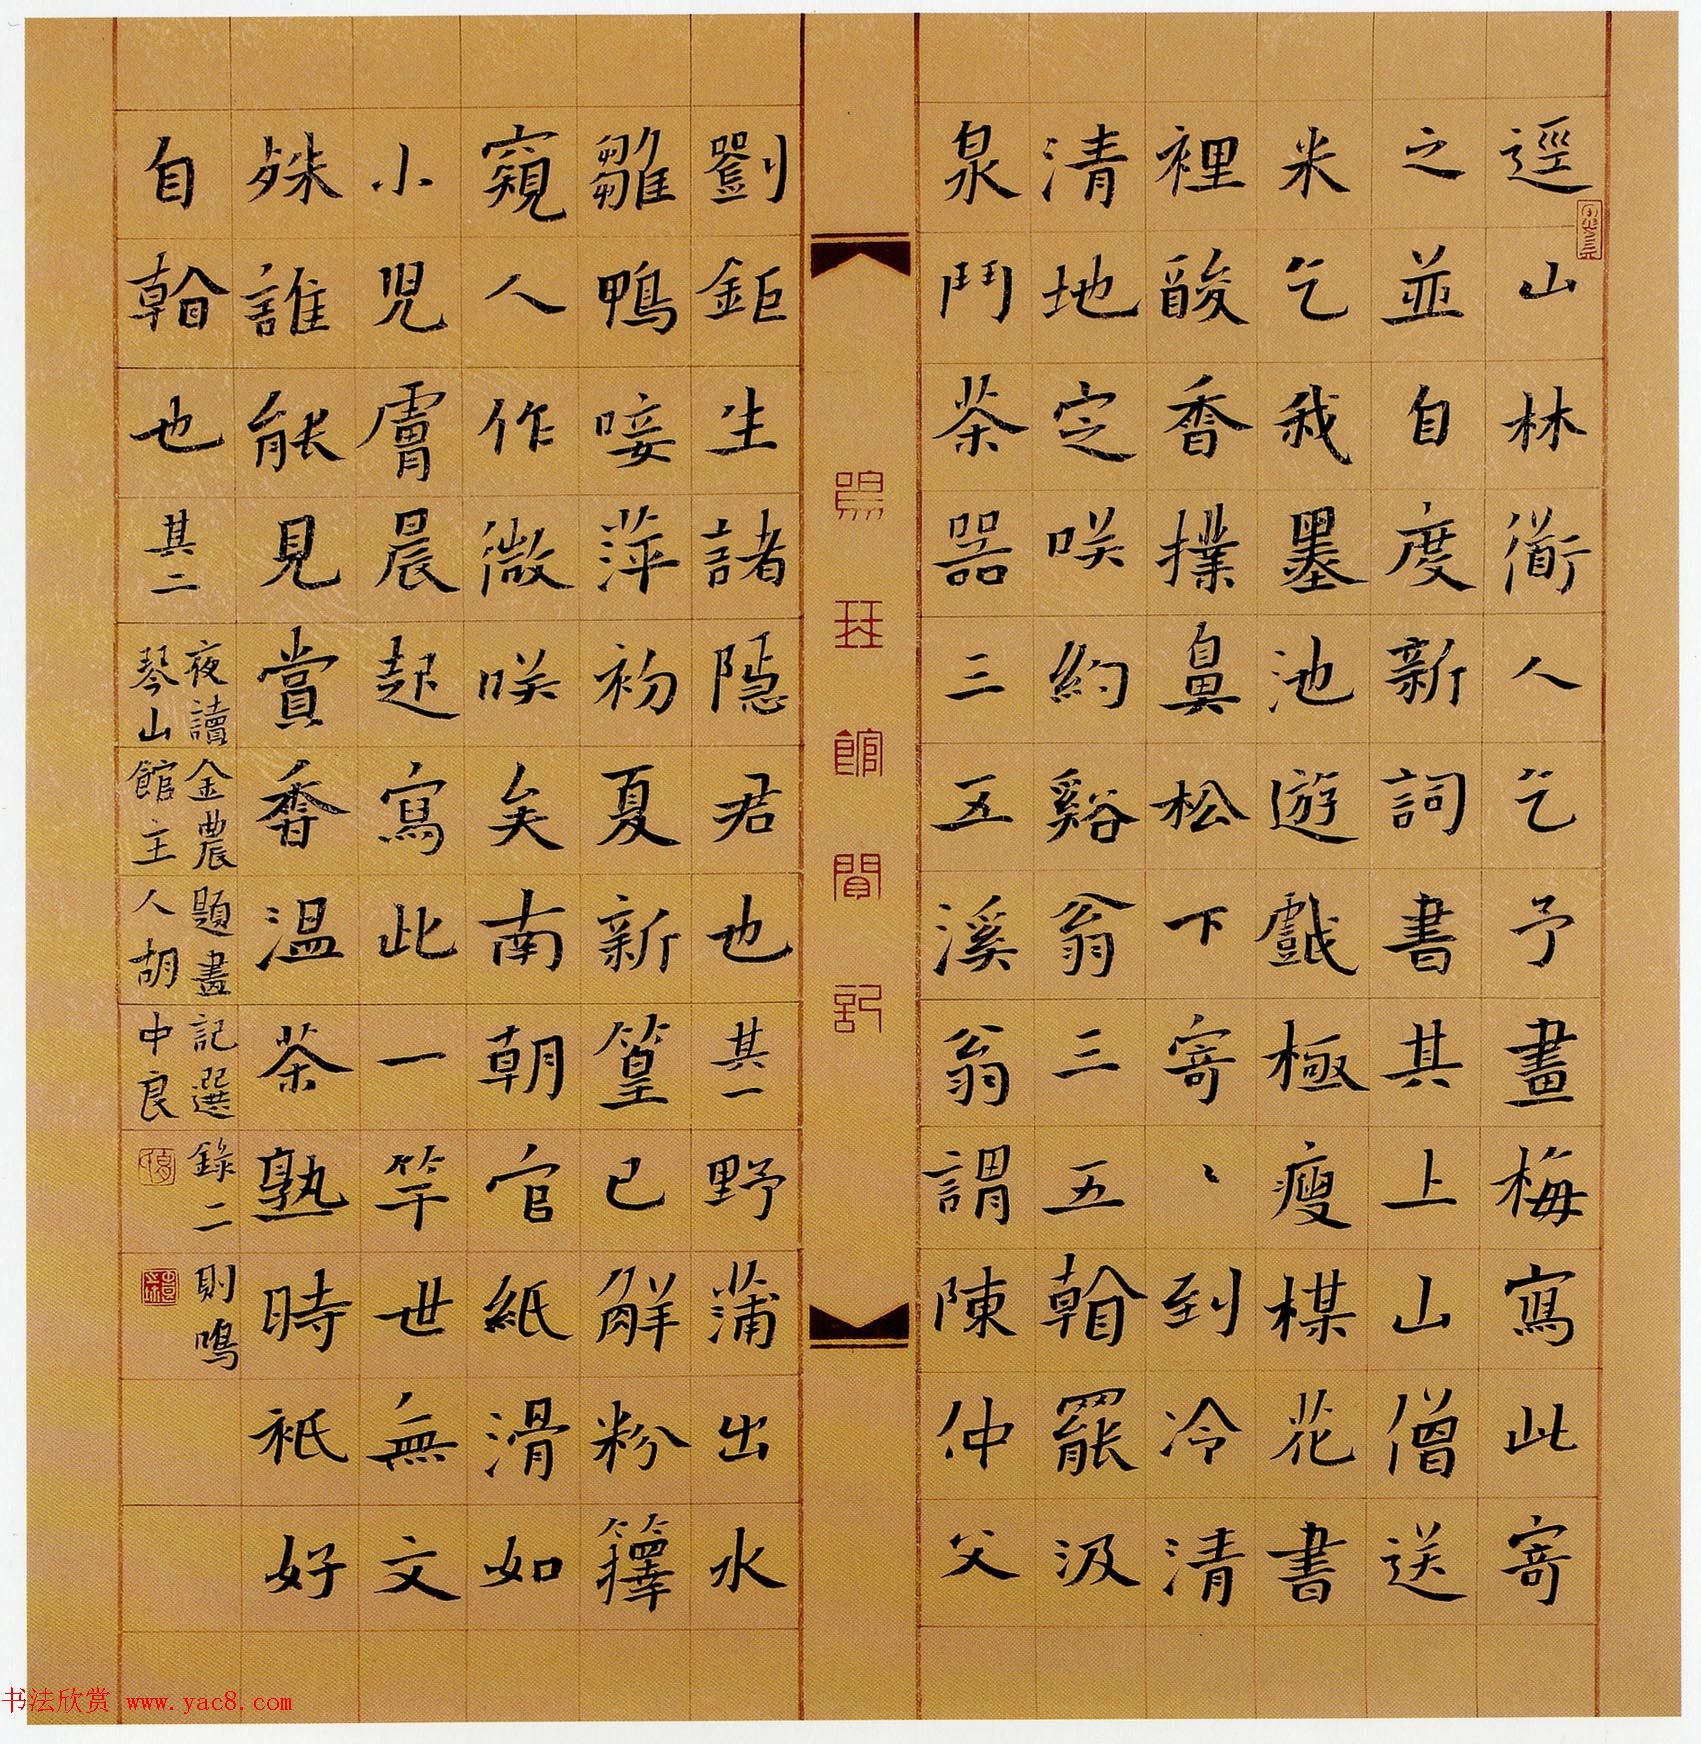 逕山林衜人乞予畫梅寫此寄
之並自度新詞書其上山僧送
米乞我墨池遊戲極瘦楳花書
裡酸香撲鼻松下寄、到冷清
清地定咲約谿翁三五翰罷汲
泉鬥茶器三五溪翁謂陳仲父
鳴琴館閒記
劉鉅生諸隱君也其一野蒲出水
雛鴨唼萍初夏新篁已解粉籜
窺人作微咲矣南朝官紙滑如
小兒膚晨起寫此一竿世無文
殊誰能見賞香温茶熟時衹好
自翰也其二
夜讀金農題畫記選錄二則鳴
琴山館主人胡中良
书法欣赏 www.yac8.com